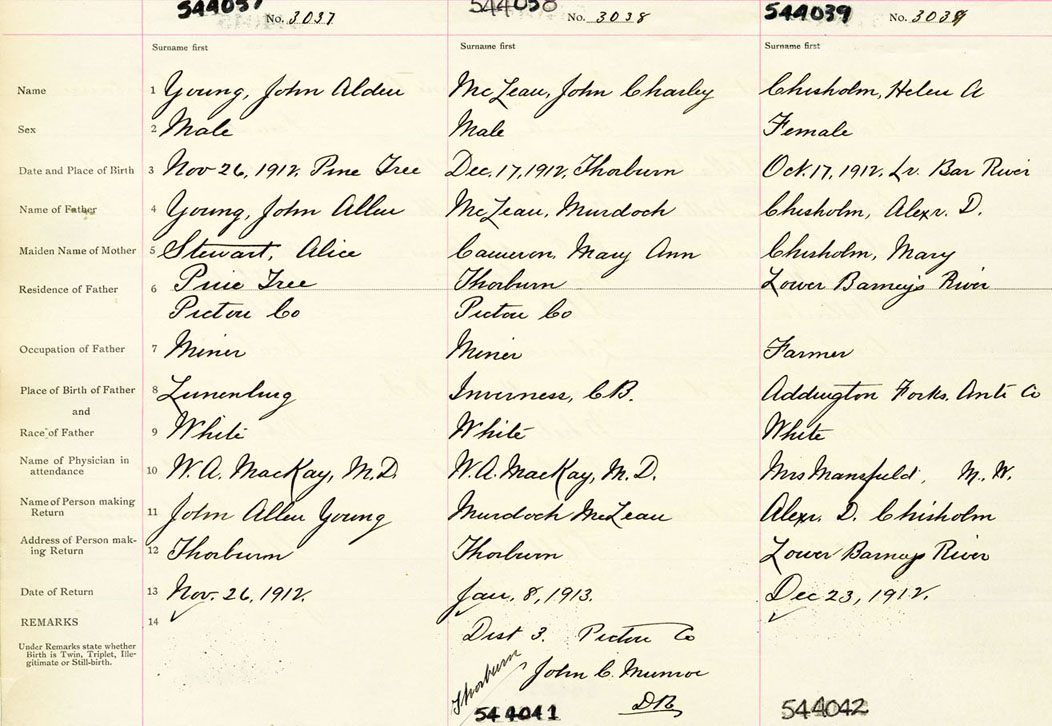 544037 No. 3037 544038 No. 3038 544039 No. 3039
Surname first Surname first Surname first
Name 1 Young, John Alden McLean, John Charley Chisholm, Helen A
Sex 2 Male Male Female
Date and Place of Birth 3 Nov 26, 1912, Pine Tree Dec. 17, 1912, Thorburn Oct. 17, 1912, Lr. Bar River
Name of Father 4 Young, John Allen McLean, Murdoch Chisholm, Alexr. D.
Maiden Name of Mother 5 Stewart, Alice Cameron, Mary Ann Chisholm, Mary
Residence of Father 6 Pine Tree Thorburn Lower Barney's River
Pictou Co Pictou Co
Occupation of Father 7 Miner Miner Farmer
Place of Birth of Father 8 Lunenburg Inverness, C.B. Addington Forks, Anti Co
and
Race of Father 9 White White White
Name of Physician in
attendance 10 W. A. MacKay, M.D. W. A. MacKay, M.D. Mrs Mansfield, M. W.
Name of Person making
Return 11 John Allen Young Murdoch McLean Alexr. D. Chisholm
Address of Person mak-
ing Return 12 Thorburn Thorburn Lower Barneys River
Date of Return 13 Nov. 26, 1912. Jan. 8, 1913. Dec 23, 1912.
REMARKS 14
Dist 3. Pictou Co
Under Remarks state whether
Birth is Twin, Triplet, Ille-
gitimate or Still-birth.
Thorburn John C. Munroe
D.R.
544041 544042